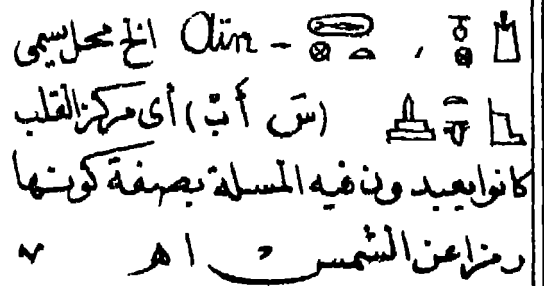 ، – Ain الخ محل يسمى
(سَ أَبْ) أى مركز القلب
كانوا يعبدون فيه المسلة بصفة كونها
رمزا عن الشمس اه ٧